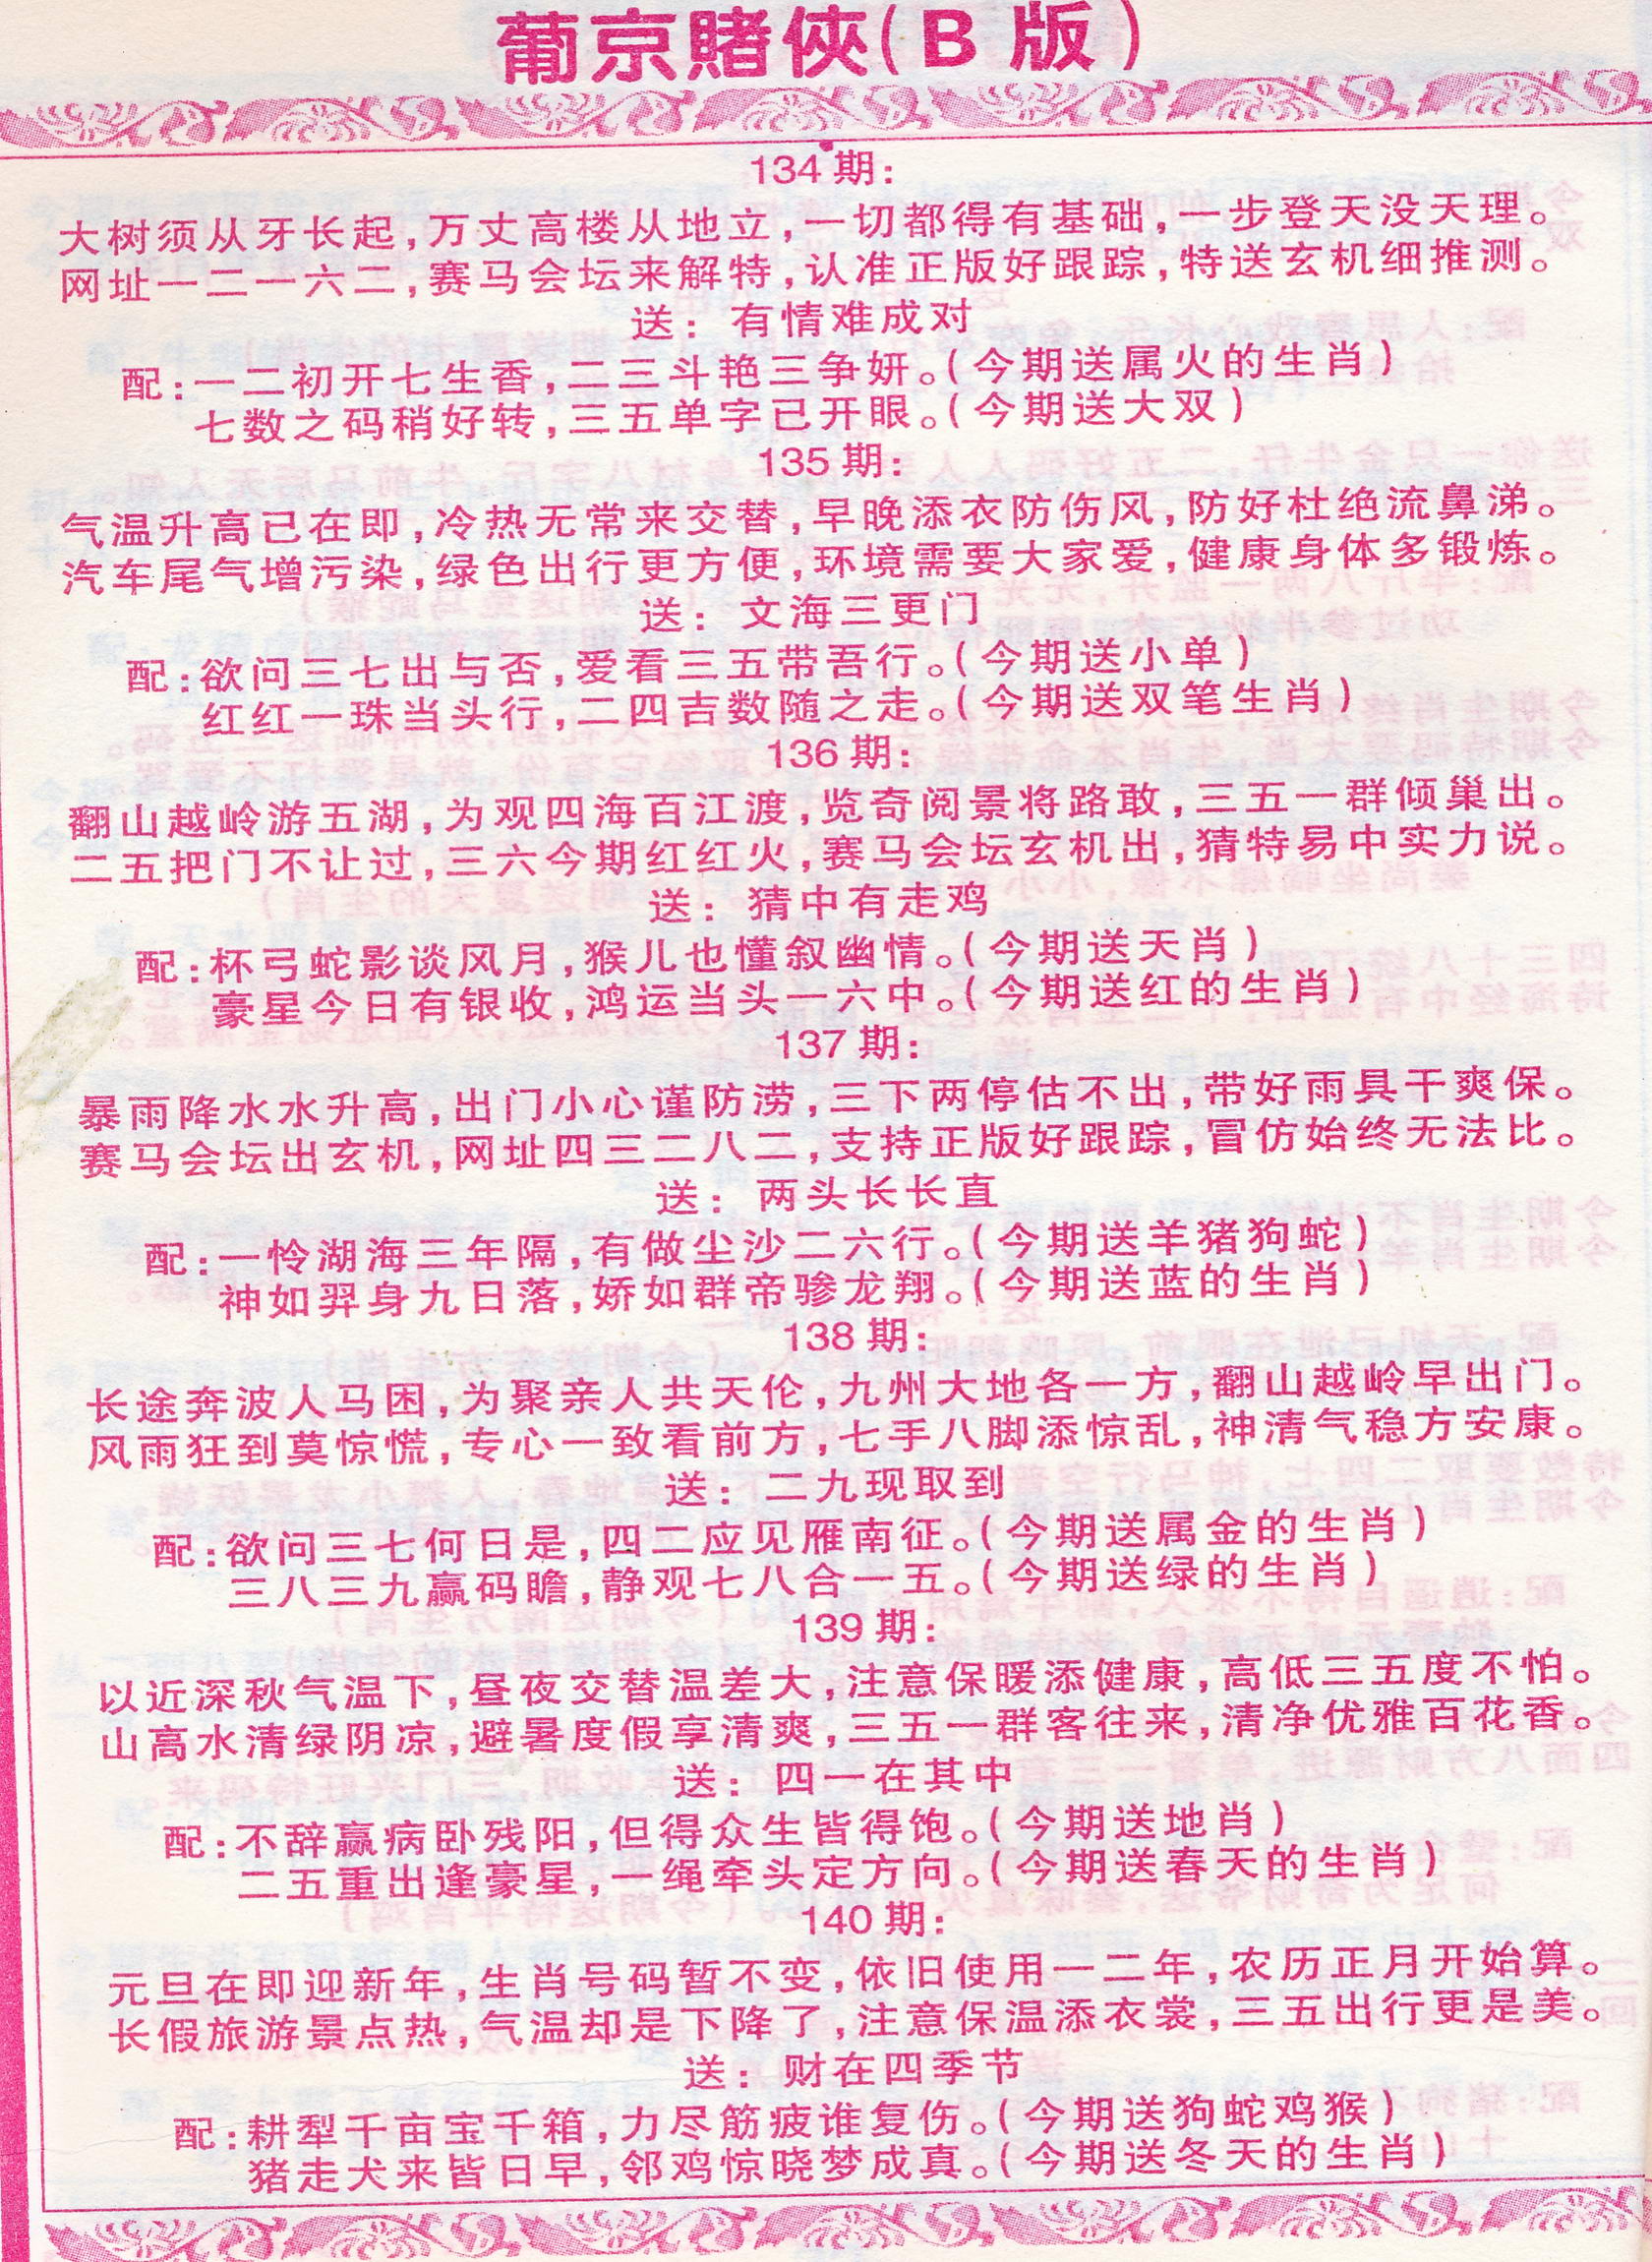 葡京賭俠(B版)
134期:
大树须从牙长起,万丈高楼从地立,一切都得有基础,一步登天没天理。
网址一二一六二,赛马会坛来解特,认准正版好跟踪,特送玄机细推测。
送: 有情难成对
配:一二初开七生香,二三斗艳三争妍。(今期送属火的生肖)
七数之码稍好转,三五单字己开眼。(今期送大双)
135期:
气温升高已在即,冷热无常来交替,早晚添衣防伤风,防好杜绝流鼻涕。
汽车尾气增污染,绿色出行更方便,环境需要大家爱,健康身体多锻炼。
送: 文海三更门
配:欲问三七出与否,爱看三五带吾行。(今期送小单)
红红一珠当头行,二四吉数随之走。(今期送双笔生肖)
136期:
翻山越岭游五湖,为观四海百江渡,览奇阅景将路敢,三五一群倾巢出。
二五把门不让过,三六今期红红火,赛马会坛玄机出,猜特易中实力说。
送: 猜中有走鸡
配:杯弓蛇影谈风月,猴儿也懂叙幽情。(今期送天肖)
豪星今日有银收,鸿运当头一六中。(今期送红的生肖)
137期:
暴雨降水水升高,出门小心谨防涝,三下两停估不出,带好雨具干爽保。
赛马会坛出玄机,网址四三二八二,支持正版好跟踪,冒仿始终无法比。
送: 两头长长直
配:一怜湖海三年隔,有做尘沙二六行。(今期送羊猪狗蛇)
神如羿身九日落,娇如群帝骖龙翔。(今期送蓝的生肖)
138期:
长途奔波人马困,为聚亲人共天伦,九州大地各一方,翻山越岭早出门。
风雨狂到莫惊慌,专心一致看前方,七手八脚添惊乱,神清气稳方安康。
送: 二九现取到
配:欲问三七何日是,四二应见雁南征。(今期送属金的生肖)
三八三九赢码瞻,静观七八合一五。(今期送绿的生肖)
139期:
以近深秋气温下,昼夜交替温差大,注意保暖添健康,高低三五度不怕。
山高水清绿阴凉,避暑度假享清爽,三五一群客往来,清净优雅百花香。
送: 四一在其中
配:不辞赢病卧残阳,但得众生皆得饱。(今期送地肖)
二五重出逢豪星,一绳牵头定方向。(今期送春天的生肖)
140期:
元旦在即迎新年,生肖号码暂不变,依旧使用一二年,农历正月开始算。
长假旅游景点热,气温却是下降了,注意保温添衣裳,三五出行更是美。
送: 财在四季节
配:耕犁千亩宝千箱,力尽筋疲谁复伤。(今期送狗蛇鸡猴)
猪走犬来皆日早,邻鸡惊晓梦成真。(今期送冬天的生肖)